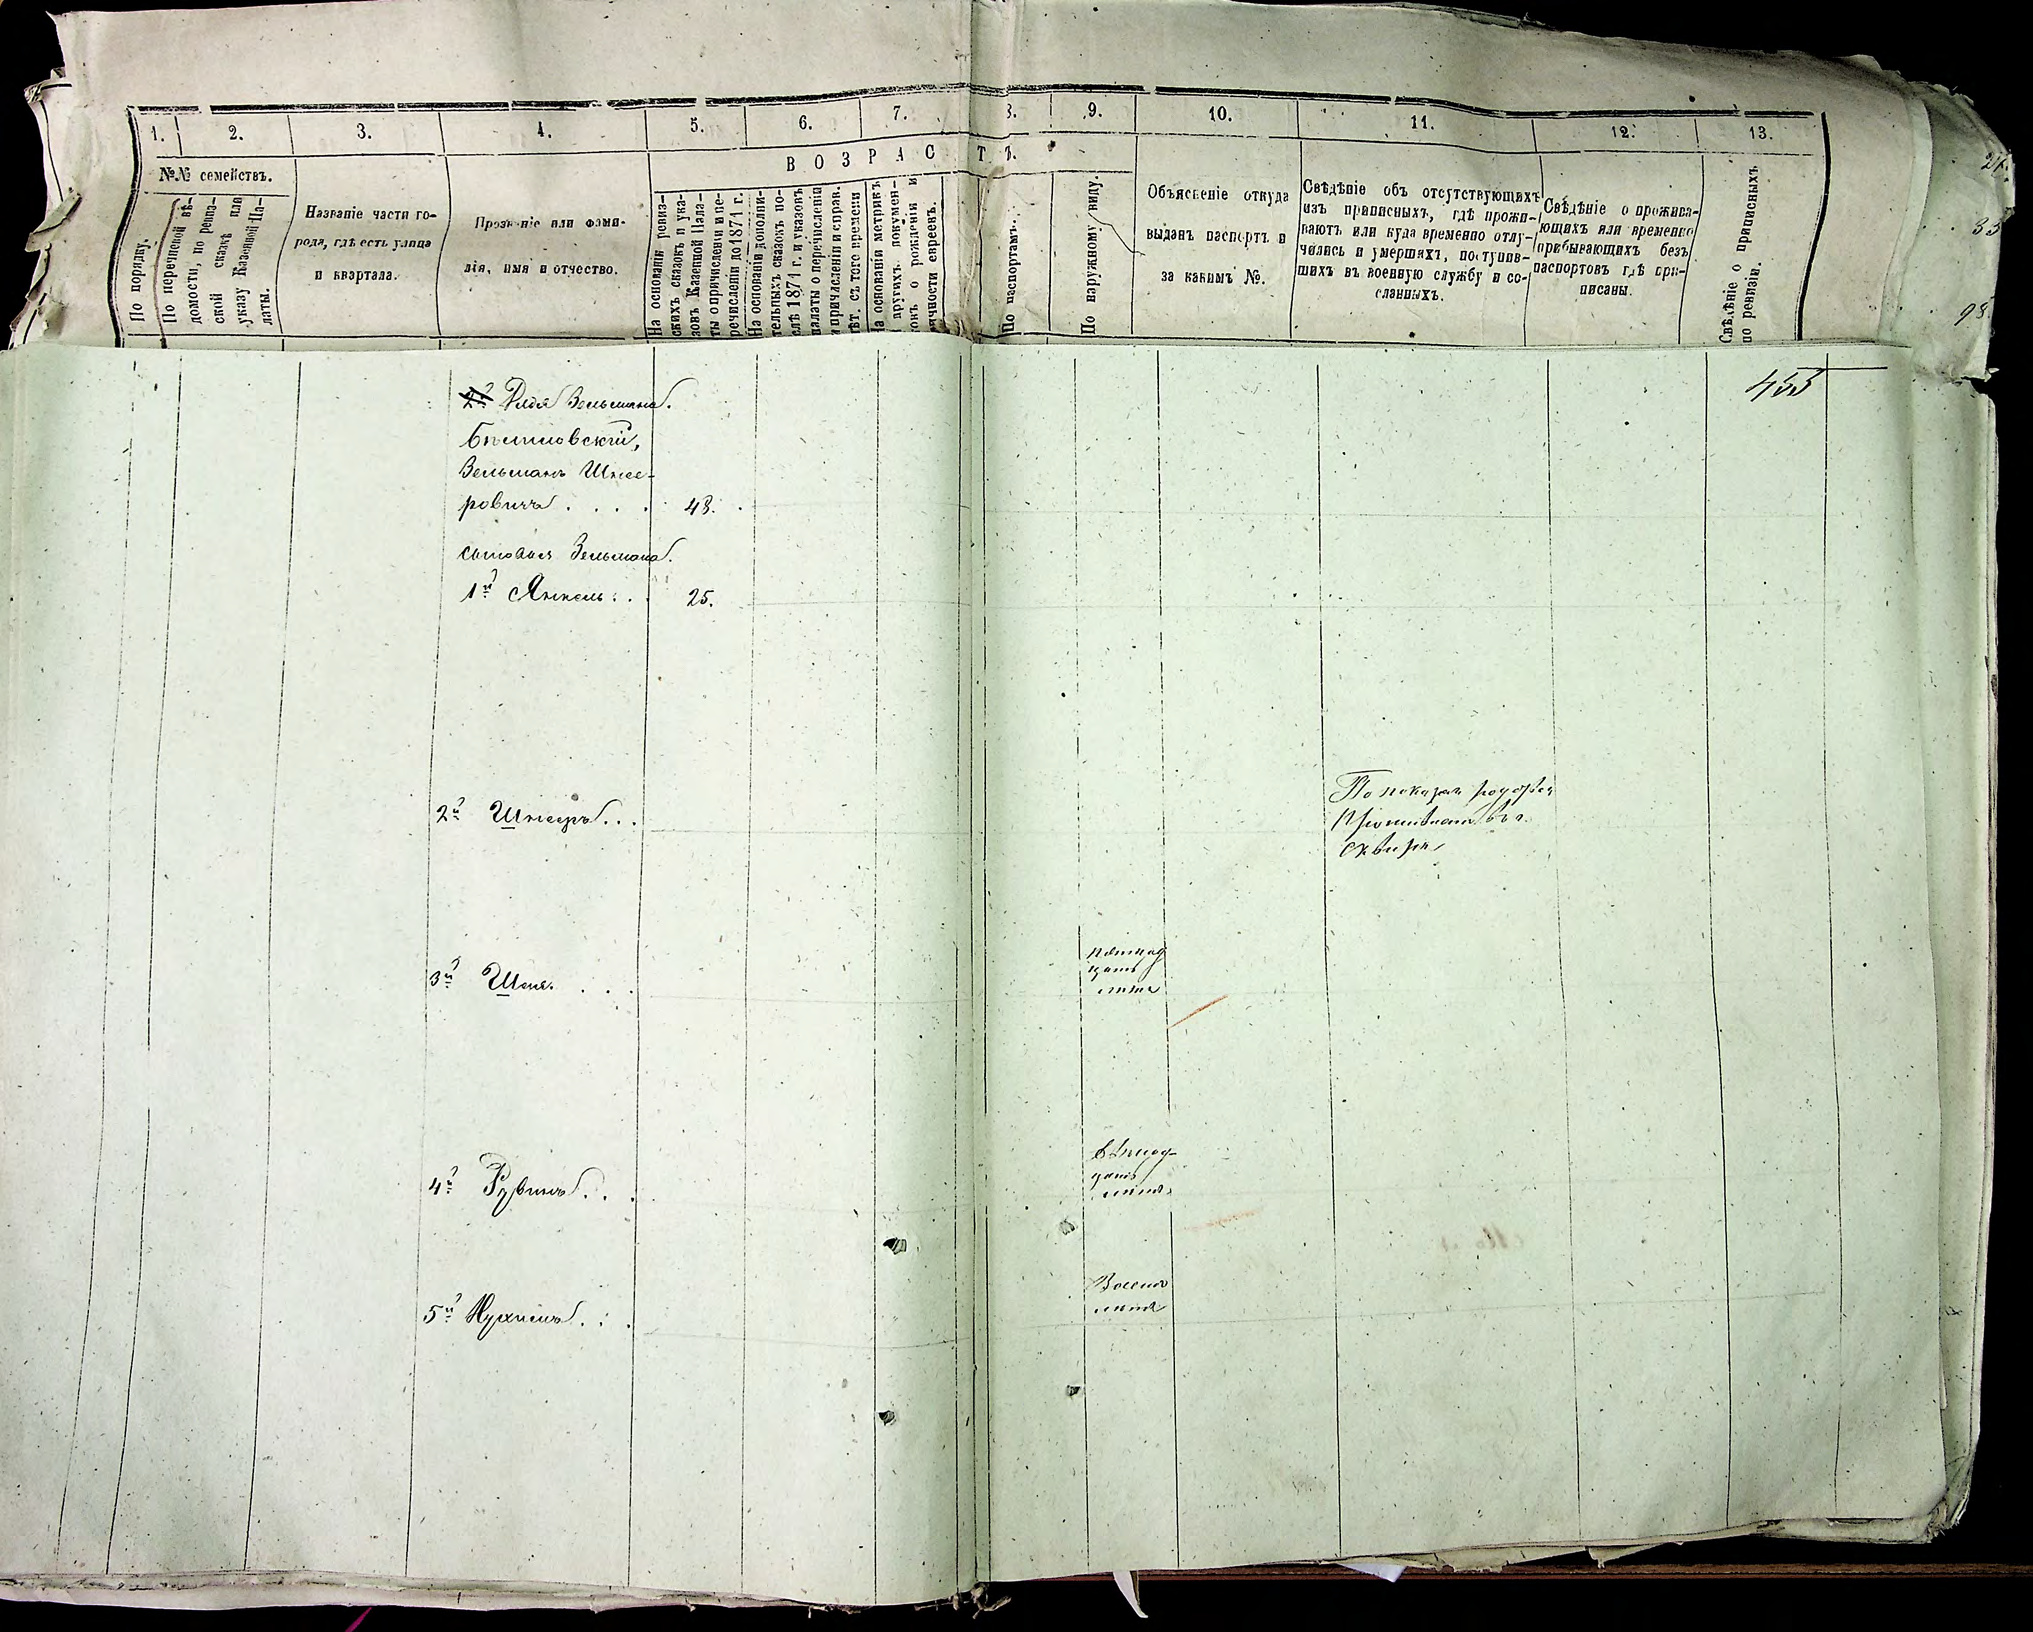 1.
2.
3.
4.
5.
6.
7.
8.
9.
10.
11.
12.
13.
ВОЗРАСТЪ.
№№ семействъ.
По порядку.
По перечневой вѣ-
домости, по ревиз-
ской сказкѣ или
указу Казенной Па-
латы.
Названіе части го-
рода, гдѣ есть улица
и квартала.
Прозваніе или фами-
лія, имя и отчество.
На основаніи ревиз-
скихъ сказокъ и ука-
зовъ Казенной Пала-
ты о причисленіи и пе-
речисленіи до 1871 г.
На основаніи дополни-
тельныхъ сказокъ по-
слѣ 1871 г. и указовъ
палаты о перечисленіи
и причисленіи и справ.
лѣт. съ того времени
На основаніи метрикъ
другихъ докумен-
товъ о рожденіи и
личности евреевъ.
По паспортамъ.
По наружному виду.
Объясненіе откуда
выданъ паспортъ и
за какимъ №.
Свѣдѣніе объ отсутствующихъ
изъ приписныхъ, гдѣ прожи-
ваютъ или куда временно отлу-
чились и умершихъ, поступив-
шихъ въ военную службу и со-
сланныхъ.
Свѣдѣніе о прожива-
ющихъ или временно
прибывающихъ безъ
паспортовъ гдѣ при-
писаны.
Свѣдѣніе о приписныхъ
по ревизіи.
453
Зельмана.
Зельманъ Шнее-
ровичъ . . . . 48.
сыновья Зельмана.
1й Янкель . . 25.
2й Шнееръ . . .
По показан
проживает въ г.
Сквирѣ
3й Шая . . .
пятнад
цать
лѣтъ
4й Рувинъ . . .
двѣнад-
цать
лѣтъ
5й Нухимъ . . .
Восемь
лѣтъ